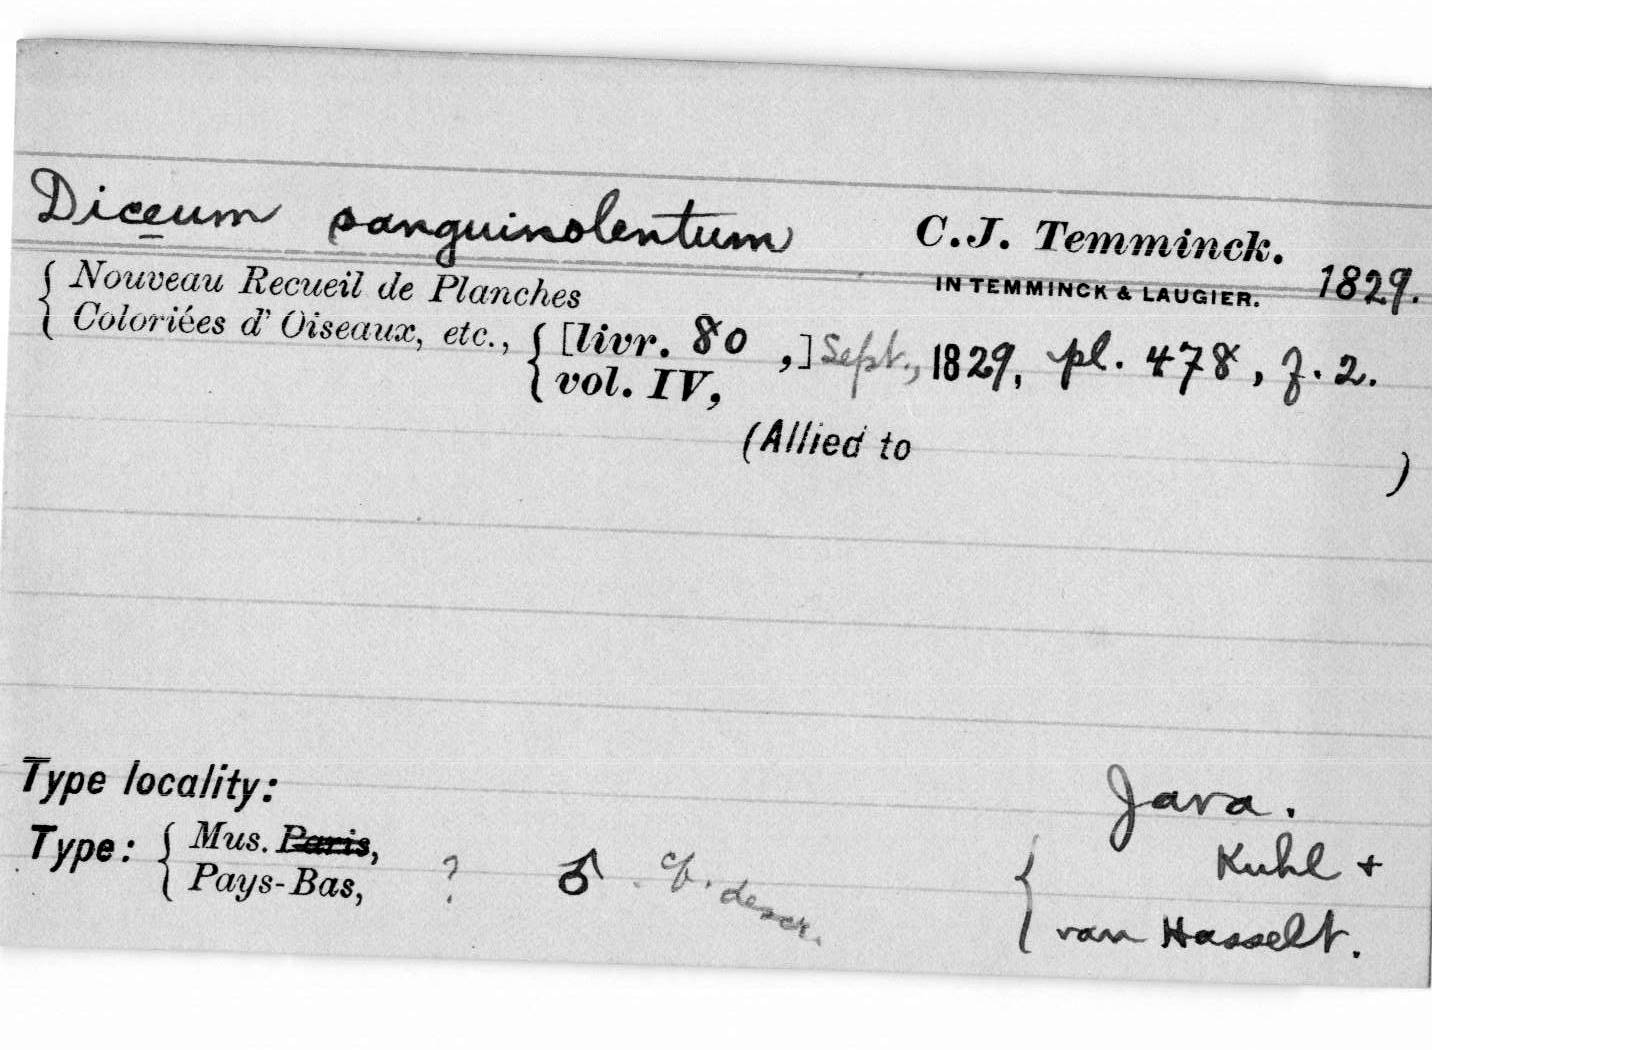 Diceum sanguinolentum C.J. Temminck.
IN TEMMINCK & LAUGIER. 1829.
{ Nouveau Recueil de Planches
Coloriées d' Oiseaux, etc., { [livr. 80 ,] Sept., 1829, pl. 478, f. 2.
vol. IV,
(Allied to )
Type locality: Java.
Type: { Mus. Paris, ? ♂ . cf. descr. { Kuhl +
Pays-Bas, van Hasselt.